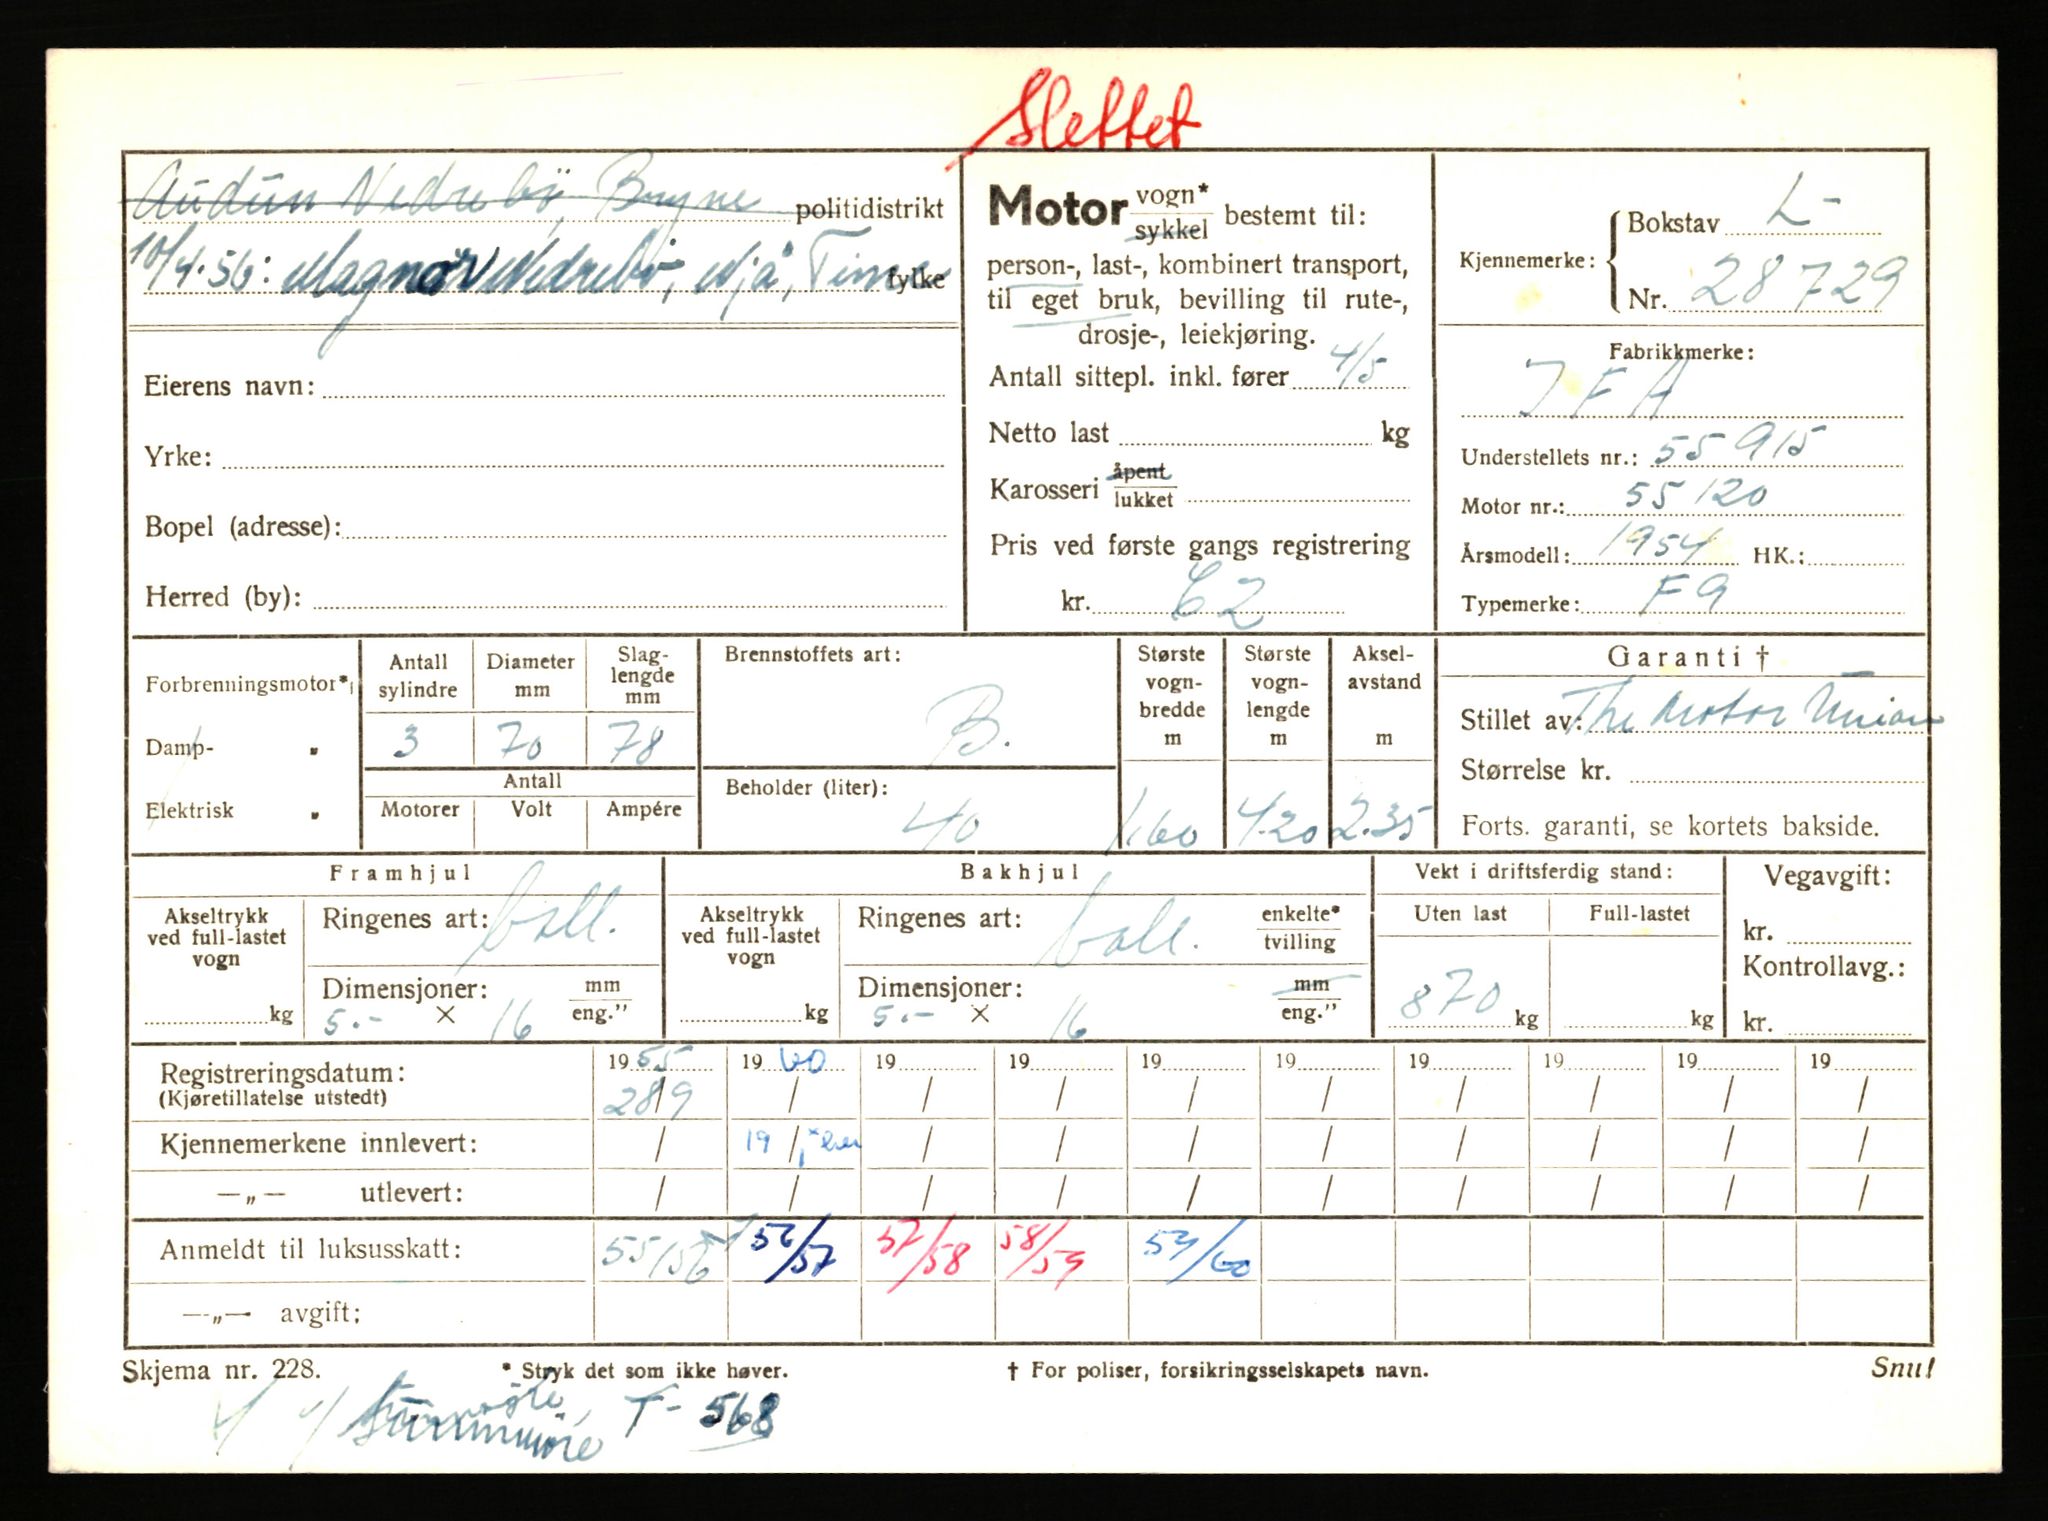 Slettet
Audun Nedrebö, Bryne politidistrikt
10/4.56: Magnar Nedrebø, Njå, Time fylke
Eierens navn:
Yrke:
Bopel (adresse):
Herred (by):
Motor vogn* sykkel bestemt til:
person-, last-, kombinert transport,
til eget bruk, bevilling til rute-,
drosje-, leiekjøring.
Antall sittepl. inkl. fører 4/5
Netto last kg
Karosseri åpent lukket
Pris ved første gangs registrering
kr. 62
Kjennemerke: Bokstav L-
Nr. 28729
Fabrikkmerke:
IFA
Understellets nr.: 55915
Motor nr.: 55120
Årsmodell: 1954 HK.:
Typemerke: F9
Forbrenningsmotor*
Damp- „
Elektrisk „
Antall sylindre 3
Diameter mm 70
Slag-lengde mm 78
Antall
Motorer Volt Ampére
Brennstoffets art:
B.
Beholder (liter):
40
Største vogn-bredde m 1,60
Største vogn-lengde m 4.20
Aksel-avstand m 2.35
Garanti †
Stillet av: The Motor Union
Størrelse kr.
Forts. garanti, se kortets bakside.
Framhjul
Akseltrykk ved full-lastet vogn kg
Ringenes art: ball.
Dimensjoner: mm eng."
5.- × 16
Bakhjul
Akseltrykk ved full-lastet vogn kg
Ringenes art: ball. enkelte* tvilling
Dimensjoner: mm eng."
5.- × 16
Vekt i driftsferdig stand:
Uten last Full-lastet
870 kg kg
Vegavgift:
kr.
Kontrollavg.:
kr.
Registreringsdatum: 1955 1960 19 19 19 19 19 19 19 19
(Kjøretillatelse utstedt) 28/9 / / / / / / / / /
Kjennemerkene innlevert: / 19 / / / / / / / / /
—„— utlevert: / / / / / / / / / /
Anmeldt til luksusskatt: 55/56 56/57 57/58 58/59 59/60
—„— avgift;
Skjema nr. 228. * Stryk det som ikke høver. † For poliser, forsikringsselskapets navn. Snu!
Sunnmøre T-568